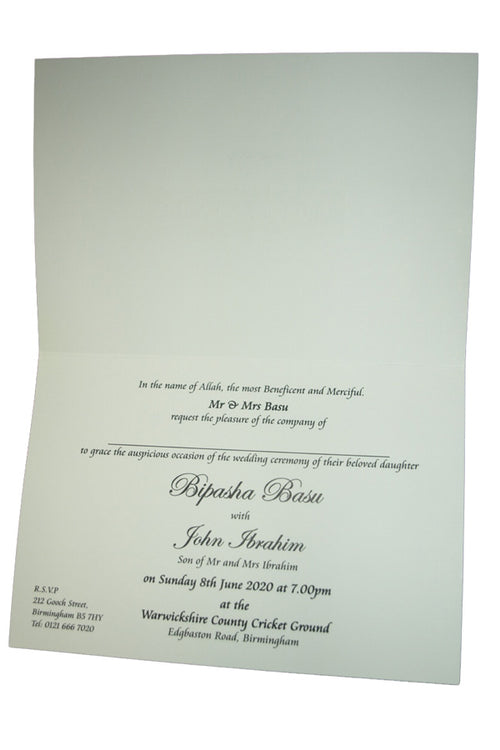 In the name of Allah, the most Beneficent and Merciful.
Mr & Mrs Basu
request the pleasure of the company of
to grace the auspicious occasion of the wedding ceremony of their beloved daughter
Bipasha Basu
with
John Ibrahim
Son of Mr and Mrs Ibrahim
on Sunday 8th June 2020 at 7.00pm
at the
Warwickshire County Cricket Ground
Edgbaston Road, Birmingham
R.S.V.P
212 Gooch Street,
Birmingham B5 7HY
Tel: 0121 666 7020